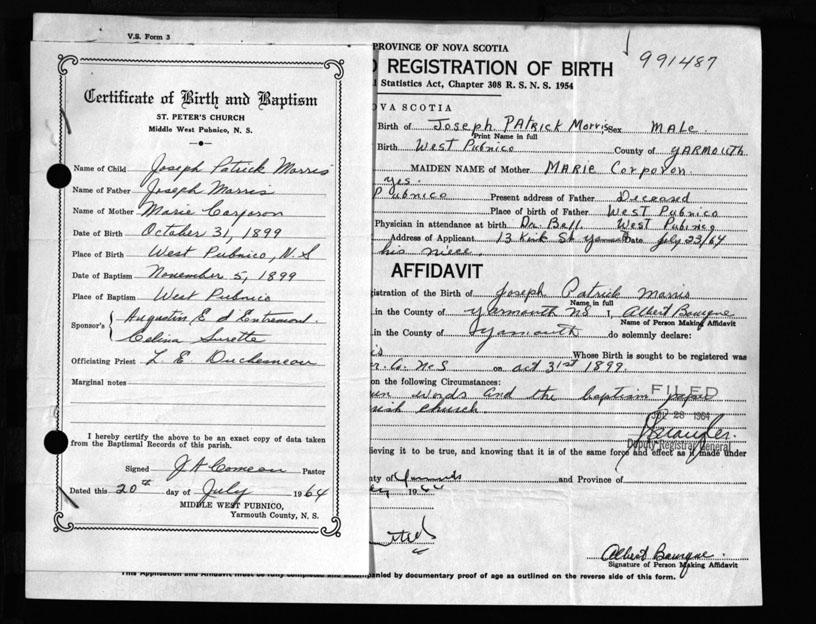 V.S. Form 3
Certificate of Birth and Baptism
ST. PETER'S CHURCH
Middle West Pubnico, N. S.
Name of Child Joseph Patrick Morris
Name of Father Joseph Morris
Name of Mother Marie Corporon
Date of Birth October 31, 1899
Place of Birth West Pubnico, N.S
Date of Baptism November 5, 1899
Place of Baptism West Pubnico
Sponsor's Augustin E d Entremont
Celina Surette
Officiating Priest L. E. Duchesneau
Marginal notes
I hereby certify the above to be an exact copy of data taken
from the Baptismal Records of this parish.
Signed J A Comeau Pastor
Dated this 20th day of July 1964
MIDDLE WEST PUBNICO,
Yarmouth County, N. S.
PROVINCE OF NOVA SCOTIA
991487
REGISTRATION OF BIRTH
Statistics Act, Chapter 308 R. S. N. S. 1954
OVA SCOTIA
Birth of Joseph PATRICK Morris Sex MALE
Print Name in full
Birth West Pubnico County of YARMOUTH
MAIDEN NAME of Mother MARIE Corporon
yes.
Pubnico Present address of Father Deceased
Place of birth of Father West Pubnico
Physician in attendance at birth Dr. Bell. West Pubnico
Address of Applicant 13 Kirk St Yarmouth Date July 23/64
his niece.
AFFIDAVIT
gistration of the Birth of Joseph Patrick Morris
Name in full
in the County of Yarmouth N.S I, Albert Bourque
Name of Person Making Affidavit
in the County of Yarmouth do solemnly declare:
Whose Birth is sought to be registered was
Co. N.S on oct 31st 1899.
on the following Circumstances:
own words and the baptism paper
rish church.
FILED
28 1964
Deputy Registrar General
lieving it to be true, and knowing that it is of the same force and effect as if made under
nty of Yarmouth and Province of
19
Albert Bourque
Signature of Person Making Affidavit
This Application and Affidavit must be fully completed and accompanied by documentary proof of age as outlined on the reverse side of this form.